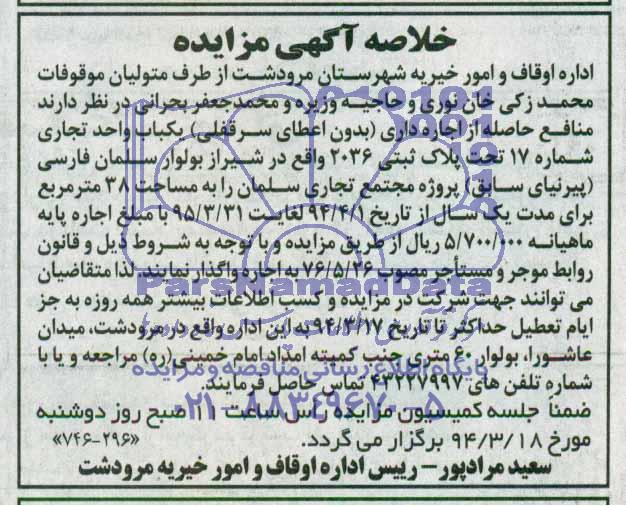 خلاصه آگهی مزایده
اداره اوقاف و امور خیریه شهرستان مرودشت از طرف متولیان موقوفات
محمد زکی خان نوری و حاجیه وزیره و محمدجعفر بحرانی در نظر دارند
منافع حاصله از اجاره داری (بدون اعطای سرقفلی) یکباب واحد تجاری
شماره ۱۷ تحت پلاک ثبتی ۲۰۳۶ واقع در شیراز بولوار سلمان فارسی
(پیرنیای سابق) پروژه مجتمع تجاری سلمان را به مساحت ۳۸ مترمربع
برای مدت یک سال از تاریخ ۹۴/۴/۱ لغایت ۹۵/۳/۳۱ با مبلغ اجاره پایه
ماهیانه ۵/۷۰۰/۰۰۰ ریال از طریق مزایده و با توجه به شروط ذیل و قانون
روابط موجر و مستأجر مصوب ۷۶/۵/۲۶ به اجاره واگذار نمایند. لذا متقاضیان
می توانند جهت شرکت در مزایده و کسب اطلاعات بیشتر همه روزه به جز
ایام تعطیل حداکثر تا تاریخ ۹۴/۳/۱۷ به این اداره واقع در مرودشت، میدان
عاشورا، بولوار ۶۰ متری جنب کمیته امداد امام خمینی(ره) مراجعه و یا با
شماره تلفن های ۴۳۲۲۷۹۹۷ تماس حاصل فرمایند.
ضمناً جلسه کمیسیون مزایده رأس ساعت ۱۱ صبح روز دوشنبه
مورخ ۹۴/۳/۱۸ برگزار می گردد. «۲۹۶-۷۴۶»
سعید مرادپور – رییس اداره اوقاف و امور خیریه مرودشت
ParsNamadData
پایگاه اطلاع رسانی مناقصه و مزایده
۰۲۱-۸۸۳۴۹۶۷۰-۵